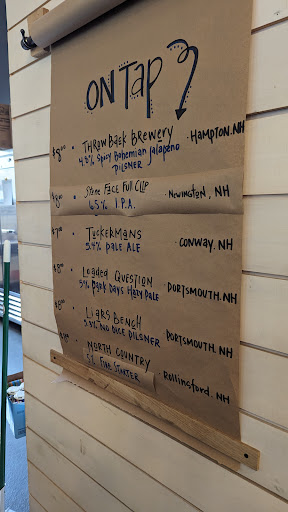 ON TAP
$8⁰⁰ • THROWBACK BREWERY • HAMPTON, NH
4.5% Spicy Bohemian Jalapeno
PILSMER
$8⁰⁰ • Stone Face Full Clip • NEWINGTON, NH
6.5% I.P.A.
$7⁰⁰ • TUCKERMANS • CONWAY, NH
5.4% PALE ALE
$8⁰⁰ • Loaded QUESTION • PORTSMOUTH, NH
5% Dark Days Hazy Pale
$8⁰⁰ • LIARS BENCH PORTSMOUTH, NH
NO DICE PILSNER
NORTH COUNTRY • Rollinsford, NH
5% FIRE STARTER